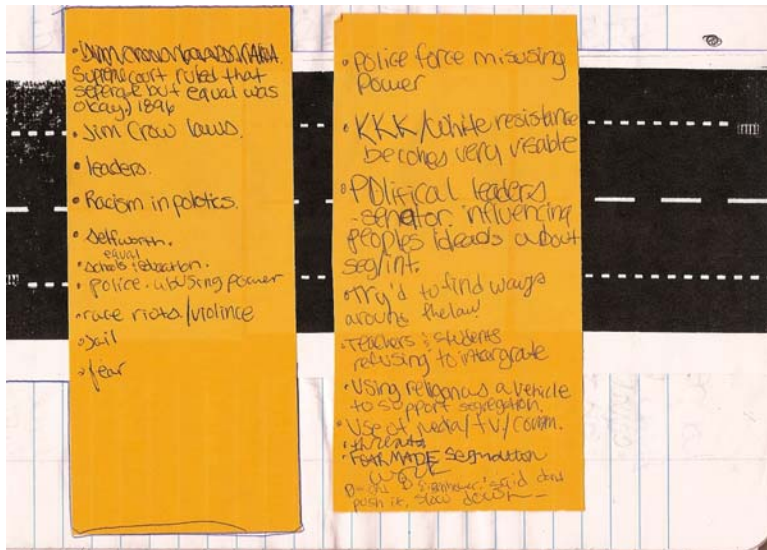 Supreme court ruled that
seperate but equal was
okay) 1896
• Jim Crow laws.
• leaders.
• Racism in polotics.
• selfworth.
equal
• schools : education.
• police. abusing power
• race riots/violince
• Jail
• fear
• police force misusing
Power
• KKK/white resistance
becomes very visable
• POlifical leaders
- senator influencing
peoples ideads about
seg/int.
• Try'd to find ways
around the law!
• Teachers : students
refusing to intargrate
• Using religon as a vehicle
to support segregation.
• Use of media/T.V./comm.
• threats
• FEAR MADE segragation
WORK
said dont
push it, slow down -